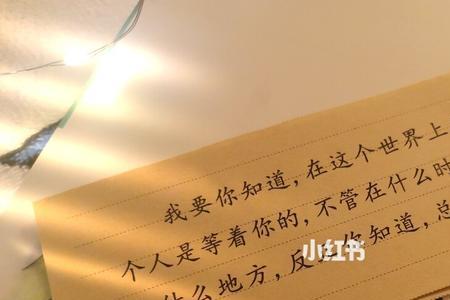 我要你知道，在这个世界上
个人是等着你的，不管在什么时
什么地方，反正你知道，总
小红书